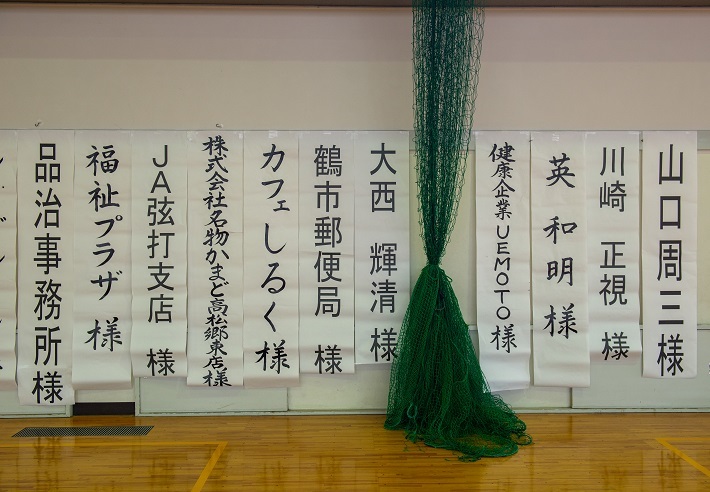 山口周三様
川崎 正視 様
英 和明 様
健康企業UEMOTO様
大西 輝清 様
鶴市郵便局 様
カフェしるく 様
株式会社名物かまど高松郷東店様
JA弦打支店 様
福祉プラザ 様
品治事務所様